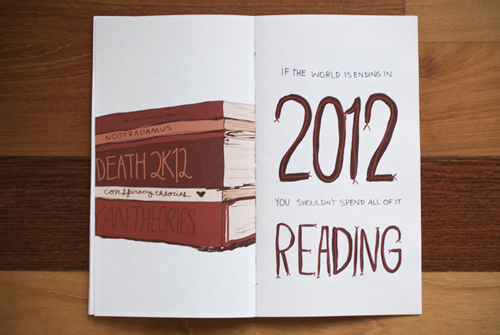 NOSTRADAMUS
DEATH 2K12
conspiracy theories
AN THEORIES
IF THE WORLD IS ENDING IN
2012
YOU SHOULDN'T SPEND ALL OF IT
READING